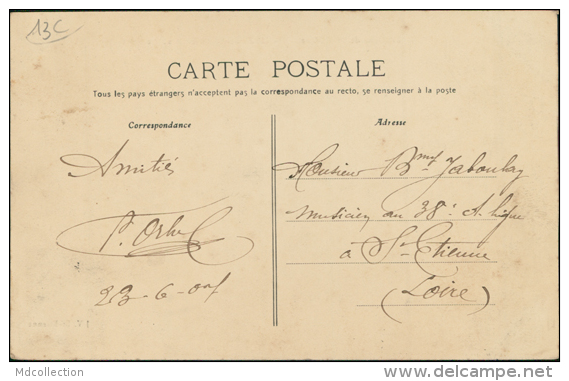 13c
CARTE POSTALE
Tous les pays étrangers n'acceptent pas la correspondance au recto, se renseigner à la poste
Correspondance
Adresse
Amitiés
23-6-07
Monsieur Jaboulay
musicien au 38e
à St-Etienne
(Loire)
Mdcollection
www.delcampe.net